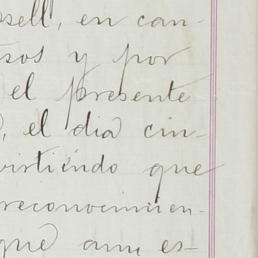 ssell, en can-
sos y por
el presente
, el dia cin-
virtiéndo que
reconocimien-
que aun es-